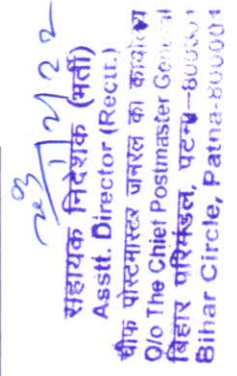 सहायक निदेशक (भर्ती)
Asstt. Director (Rectt.)
चीफ पोस्टमास्टर जनरल का कार्यालय
O/o The Chief Postmaster General
बिहार परिमंडल, पटना-800001
Bihar Circle, Patna-800001